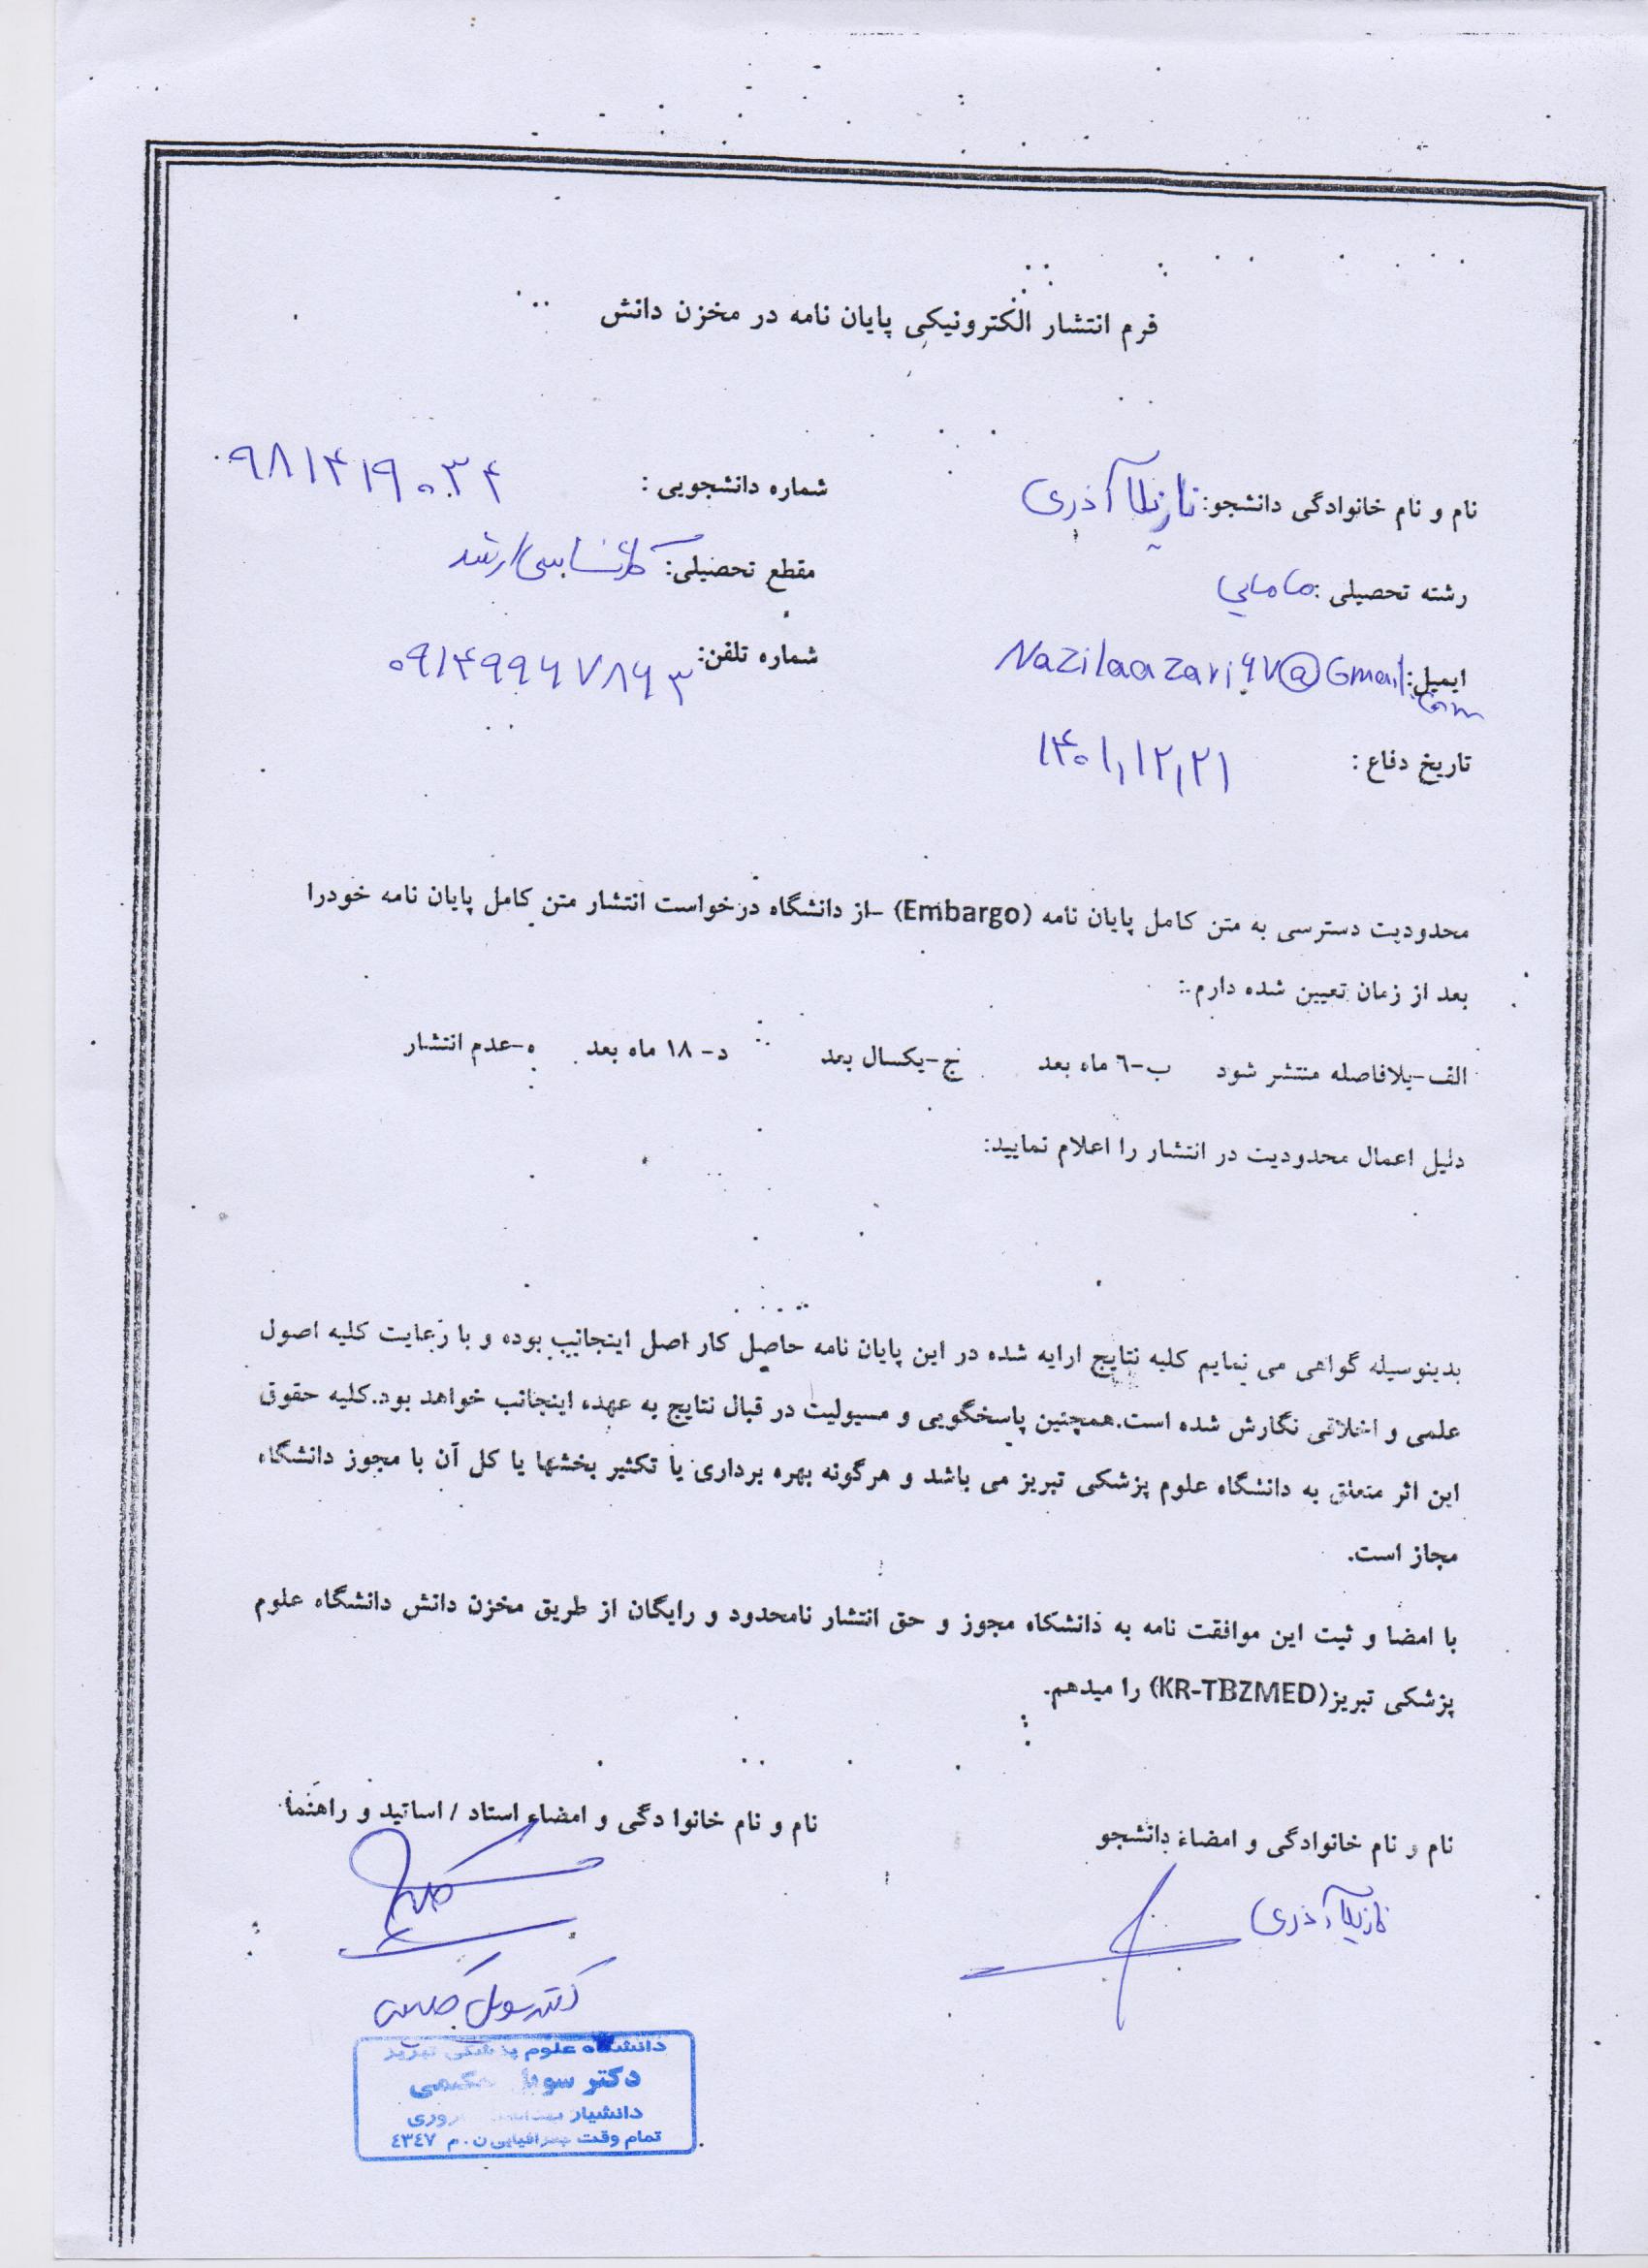 فرم انتشار الکترونیکی پایان نامه در مخزن دانش
نام و نام خانوادگی دانشجو: نازیلا آذری
شماره دانشجویی : ۹۸۱۴۱۹۰۳۴
رشته تحصیلی : مامایی
مقطع تحصیلی: کارشناسی ارشد
ایمیل: Nazilaazari۹۷@Gmail.com
شماره تلفن: ۰۹۱۴۹۹۶۷۸۶۳
تاریخ دفاع : ۱۴۰۱,۱۲,۲۱
محدودیت دسترسی به متن کامل پایان نامه (Embargo) -از دانشگاه درخواست انتشار متن کامل پایان نامه خودرا
بعد از زمان تعیین شده دارم.:
الف-بلافاصله منتشر شود ب-٦ ماه بعد ج-یکسال بعد د- ۱۸ ماه بعد ه-عدم انتشار
دلیل اعمال محدودیت در انتشار را اعلام نمایید:
بدینوسیله گواهی می نمایم کلیه نتایج ارایه شده در این پایان نامه حاصل کار اصل اینجانب بوده و با رعایت کلیه اصول
علمی و اخلاقی نگارش شده است.همچنین پاسخگویی و مسیولیت در قبال نتایج به عهده اینجانب خواهد بود.کلیه حقوق
این اثر متعلق به دانشگاه علوم پزشکی تبریز می باشد و هرگونه بهره برداری یا تکثیر بخشها یا کل آن با مجوز دانشگاه
مجاز است.
با امضا و ثبت این موافقت نامه به دانشکاه مجوز و حق انتشار نامحدود و رایگان از طریق مخزن دانش دانشگاه علوم
پزشکی تبریز(KR-TBZMED) را میدهم.
نام و نام خانوادگی و امضاء دانشجو
نام و نام خانوا دگی و امضاء استاد / اساتید و راهنما
نازیلا آذری
دکتر سویل حکیمی
دانشگاه علوم پزشکی تبریز
دکتر سویل حکیمی
دانشیار
تمام وقت جغرافیایی ن.م ٤٣٤٧